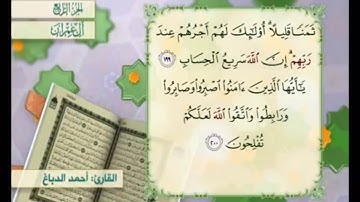 الجزء الرابع
آل عمران
ثَمَنًا قَلِيلًا ۗ أُو۟لَٰٓئِكَ لَهُمْ أَجْرُهُمْ عِندَ
رَبِّهِمْ ۗ إِنَّ ٱللَّهَ سَرِيعُ ٱلْحِسَابِ ١٩٩
يَٰٓأَيُّهَا ٱلَّذِينَ ءَامَنُوا۟ ٱصْبِرُوا۟ وَصَابِرُوا۟
وَرَابِطُوا۟ وَٱتَّقُوا۟ ٱللَّهَ لَعَلَّكُمْ
تُفْلِحُونَ ٢٠٠
القارئ: أحمد الدباغ